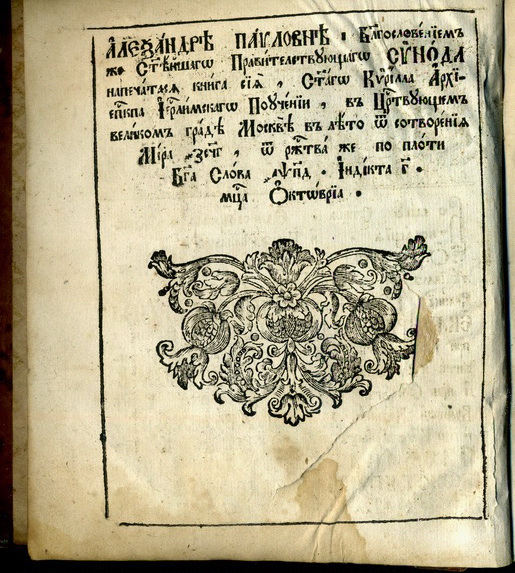 АЛЕѮА́НДРѢ ПАѴЛОВНѢ . Бл҃гослове́нїемъ
же Ст҃ѣ́йшагѡ Прави́телствующагѡ СѴНО́ДА
напеча́тася кни́га сїѧ̀ , Ст҃а́гѡ Кѷри́лла А҆рхї-
епⷭ҇кпа І҆ерⷭ҇ли́мскагѡ Поуче́нїи , въ Црⷭ҇твующемъ
вели́комъ гра́дѣ Москвѣ̀ въ лѣ́то ѿ сотворе́нїя
Мі́ра ҂зсч҃г , ѿ рⷤтва̀ же по пло́ти
Бг҃а Сло́ва ҂аѱп҃д . І҆нді́кта г҃ .
мцⷭ҇а Ѻ҆ктѡ́врїа .